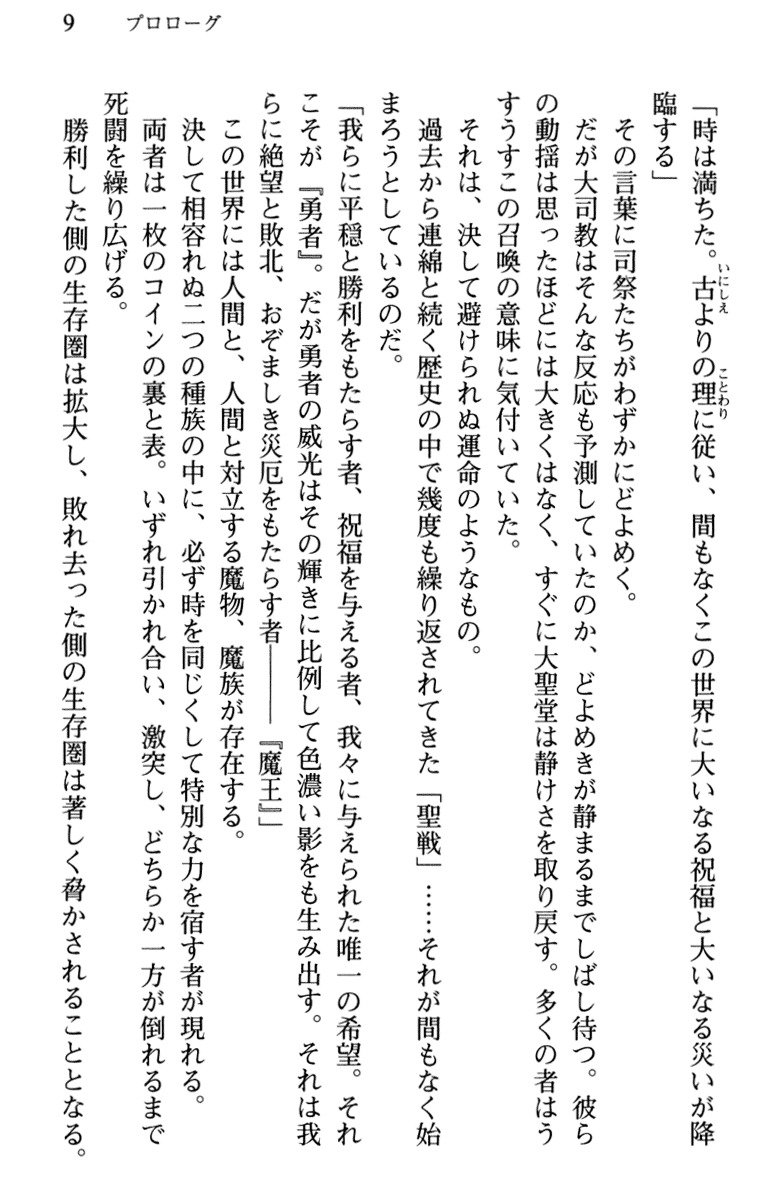 9　プロローグ
「時は満ちた。古よりの理に従い、間もなくこの世界に大いなる祝福と大いなる災いが降
いにしえ
ことわり
臨する」
その言葉に司祭たちがわずかにどよめく。
だが大司教はそんな反応も予測していたのか、どよめきが静まるまでしばし待つ。彼ら
の動揺は思ったほどには大きくはなく、すぐに大聖堂は静けさを取り戻す。多くの者はう
すうすこの召喚の意味に気付いていた。
それは、決して避けられぬ運命のようなもの。
過去から連綿と続く歴史の中で幾度も繰り返されてきた「聖戦」……それが間もなく始
まろうとしているのだ。
「我らに平穏と勝利をもたらす者、祝福を与える者、我々に与えられた唯一の希望。それ
こそが『勇者』。だが勇者の威光はその輝きに比例して色濃い影をも生み出す。それは我
らに絶望と敗北、おぞましき災厄をもたらす者――『魔王』」
この世界には人間と、人間と対立する魔物、魔族が存在する。
決して相容れぬ二つの種族の中に、必ず時を同じくして特別な力を宿す者が現れる。
両者は一枚のコインの裏と表。いずれ引かれ合い、激突し、どちらか一方が倒れるまで
死闘を繰り広げる。
勝利した側の生存圏は拡大し、敗れ去った側の生存圏は著しく脅かされることとなる。